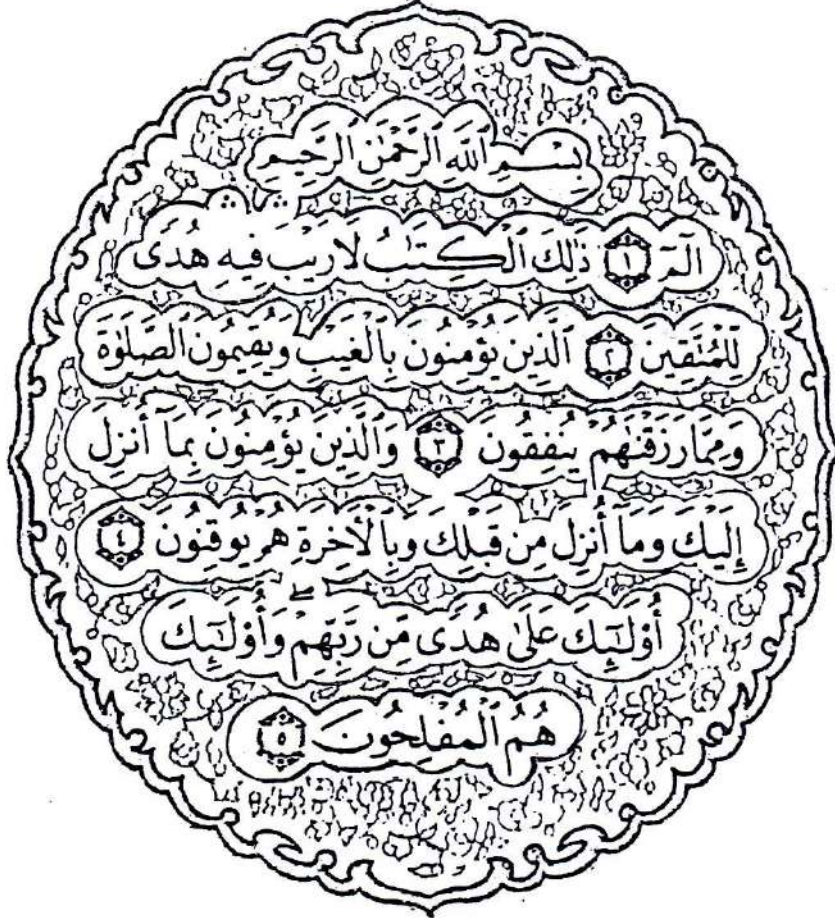 بِسْمِ ٱللَّهِ ٱلرَّحْمَٰنِ ٱلرَّحِيمِ
الٓمٓ ١ ذَٰلِكَ ٱلْكِتَٰبُ لَا رَيْبَ فِيهِ هُدًى
لِّلْمُتَّقِينَ ٢ ٱلَّذِينَ يُؤْمِنُونَ بِٱلْغَيْبِ وَيُقِيمُونَ ٱلصَّلَوٰةَ
وَمِمَّا رَزَقْنَٰهُمْ يُنفِقُونَ ٣ وَٱلَّذِينَ يُؤْمِنُونَ بِمَآ أُنزِلَ
إِلَيْكَ وَمَآ أُنزِلَ مِن قَبْلِكَ وَبِٱلْأَخِرَةِ هُمْ يُوقِنُونَ ٤
أُو۟لَٰٓئِكَ عَلَىٰ هُدًى مِّن رَّبِّهِمْ وَأُو۟لَٰٓئِكَ
هُمُ ٱلْمُفْلِحُونَ ٥